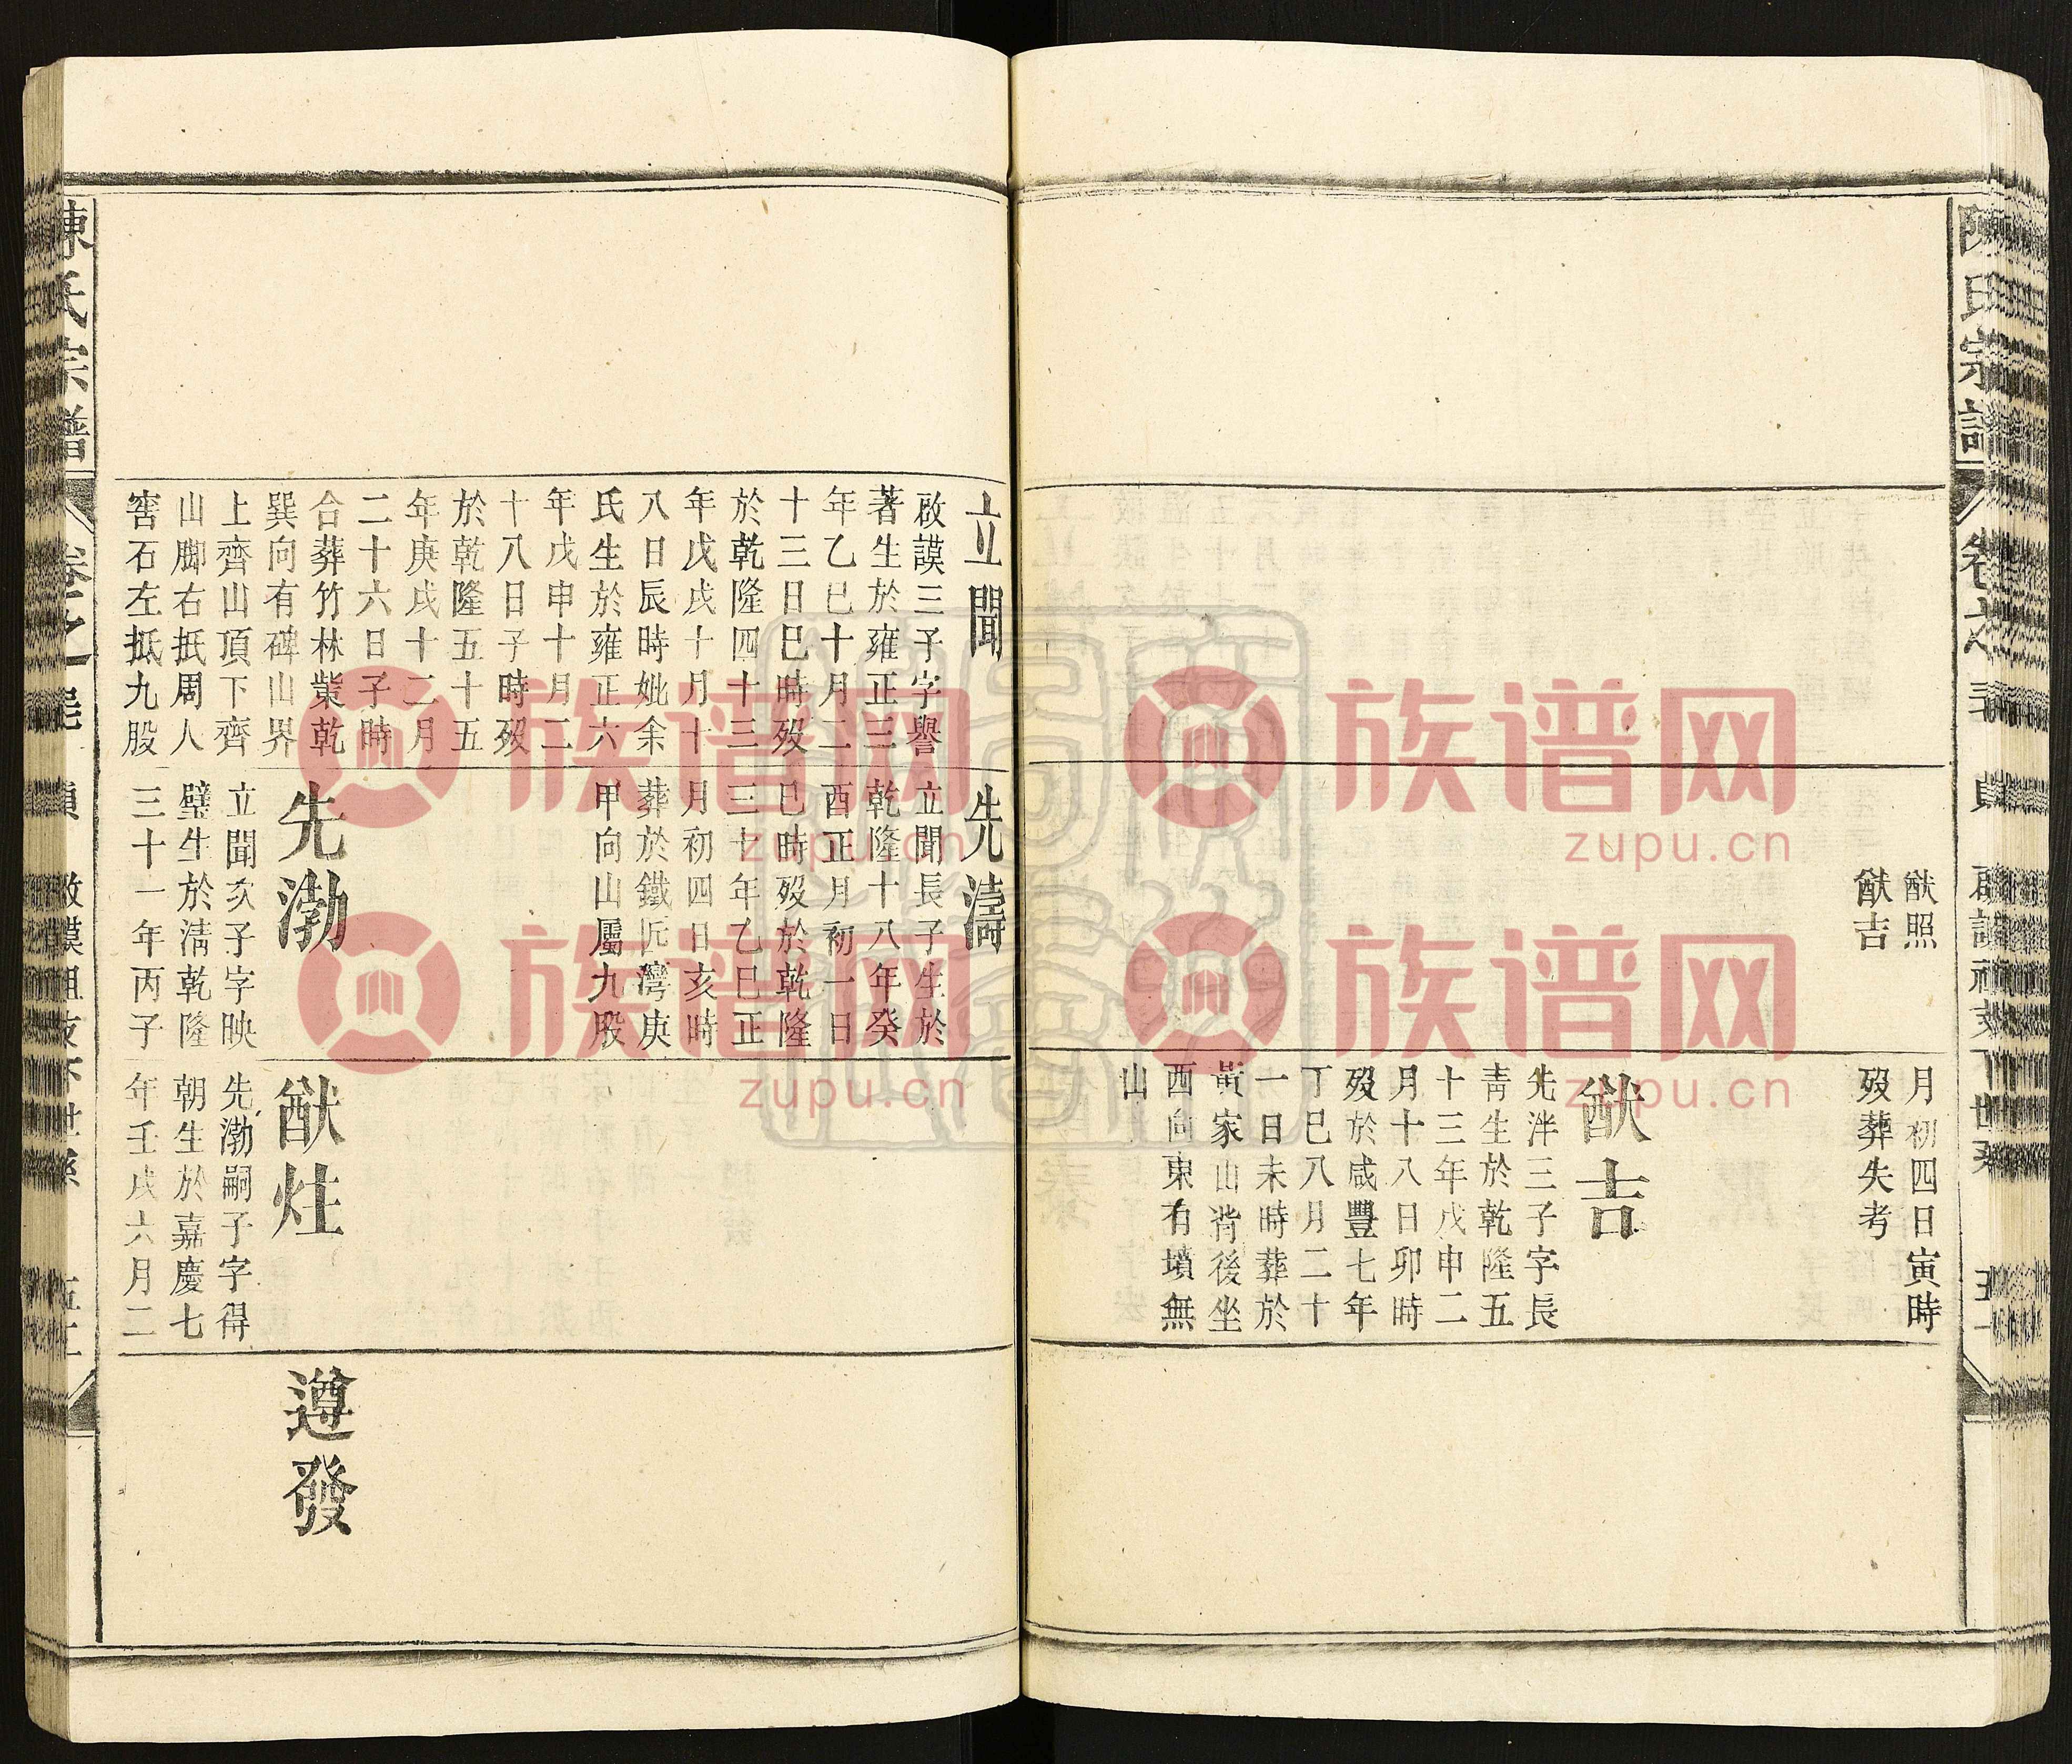 猷照
猷吉
月初四日寅時
歿葬失考
猷吉
先泮三子字長
靑生於乾隆五
十三年戊申二
月十八日卯時
歿於咸豐七年
丁巳八月二十
一日未時葬於
黃家山背後坐
西向東有墳無
山
立聞
啟謨三子字譽
著生於雍正三
年乙巳十月二
十三日巳時歿
於乾隆四十三
年戊戌十月十
八日辰時妣余
氏生於雍正六
年戊申十月二
十八日子時歿
於乾隆五十五
年庚戌十二月
二十六日子時
合葬竹林棠乾
巽向有碑山界
上齊山頂下齊
山脚右抵周人
窖石左抵九股
先濤
立聞長子生於
乾隆十八年癸
酉正月初一日
巳時歿於乾隆
三十年乙巳正
月初四日亥時
葬於鐵匠灣庚
甲向山屬九股
先渤
立聞次子字映
璧生於淸乾隆
三十一年丙子
猷炷
先渤嗣子字得
朝生於嘉慶七
年壬戌六月二
遵發
陳氏宗譜
族谱网
zupu.cn
族谱网
zupu.cn
族谱网
zupu.cn
族谱网
zupu.cn